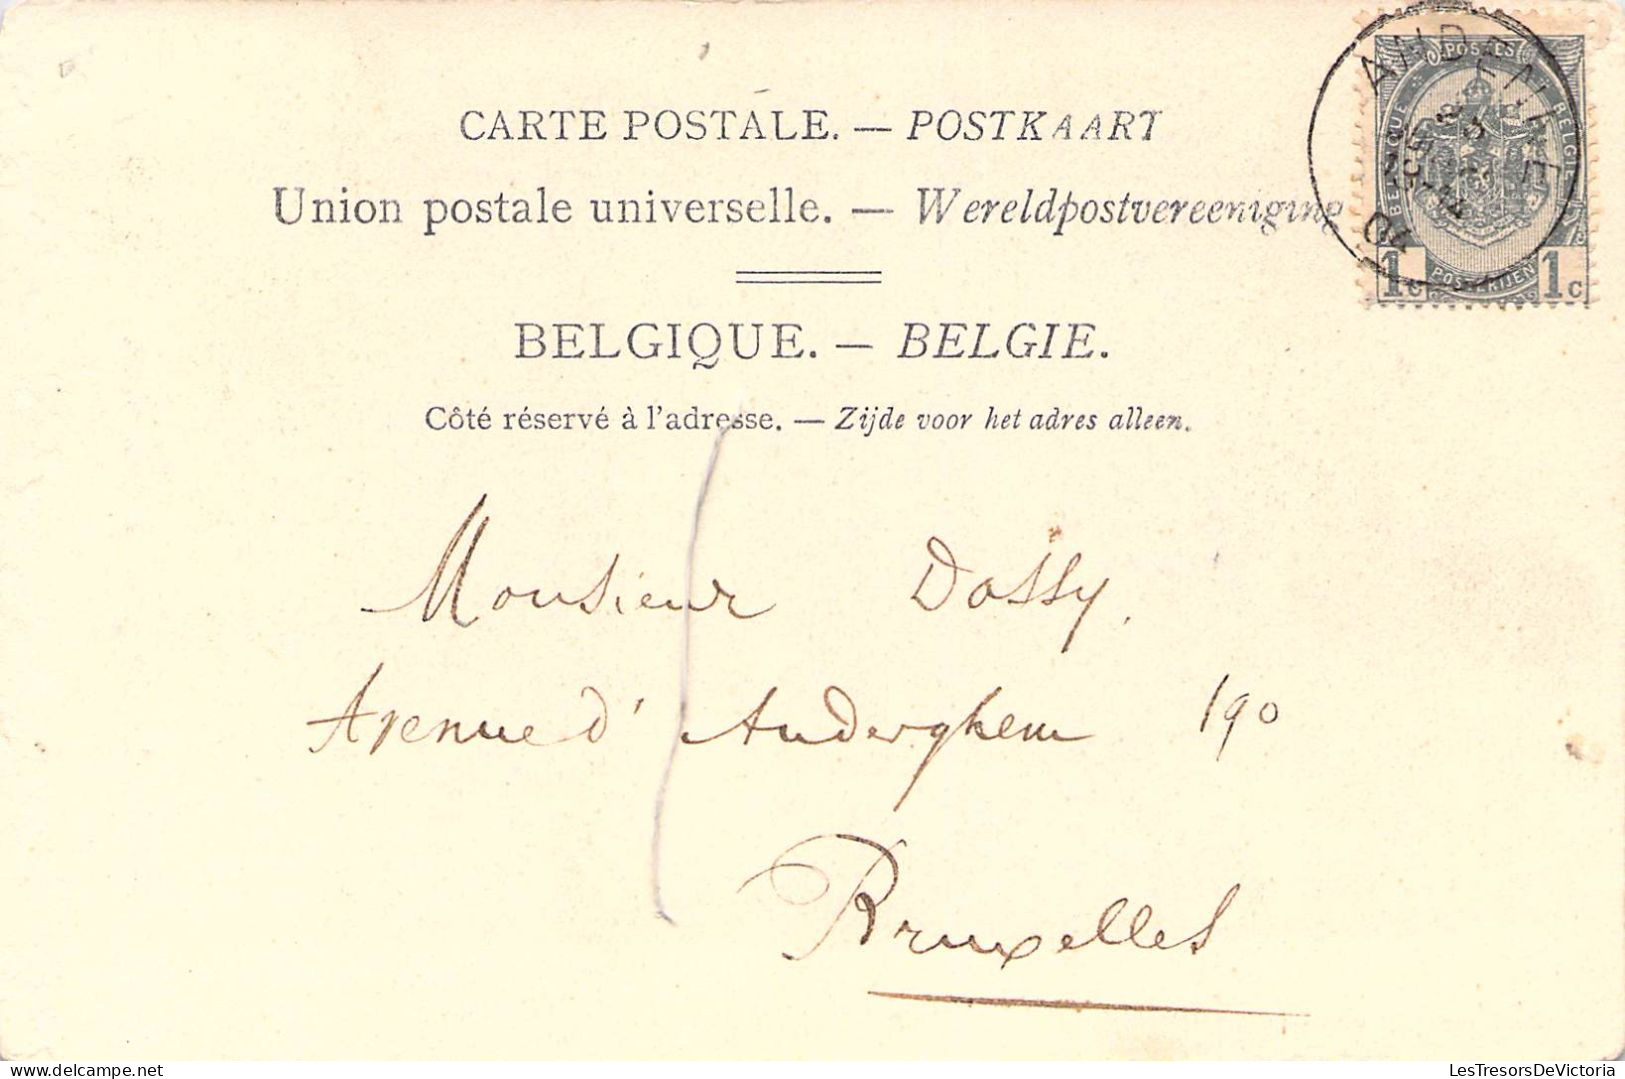 CARTE POSTALE. — POSTKAART
Union postale universelle. — Wereldpostvereeniging
BELGIQUE. — BELGIE.
Côté réservé à l'adresse. — Zijde voor het adres alleen.
POSTES
BELGIQUE
BELGIE
POSTERIJEN
1c 1c
ANDENNE
10
Monsieur Dossy.
Avenue d'Auderghem 190
Bruxelles
LesTresorsDeVictoria